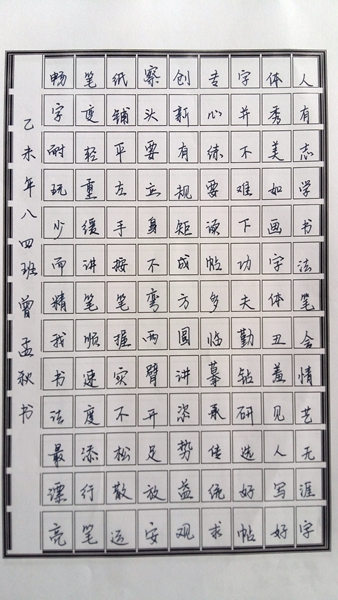 人有志学书法笔会情艺无涯字
体秀美如画字体丑羞见人写好
字并不难下功夫勤钻研选好帖
专心练要读帖多临摹承传统求
创新有规矩成方圆讲姿势益观
察头要正身不弯两臂开足放安
纸铺平左手按笔握实不松散运
笔度轻重缓讲笔顺速度添行笔
畅字耐玩少而精我书法最漂亮
乙未年八四班曾孟书